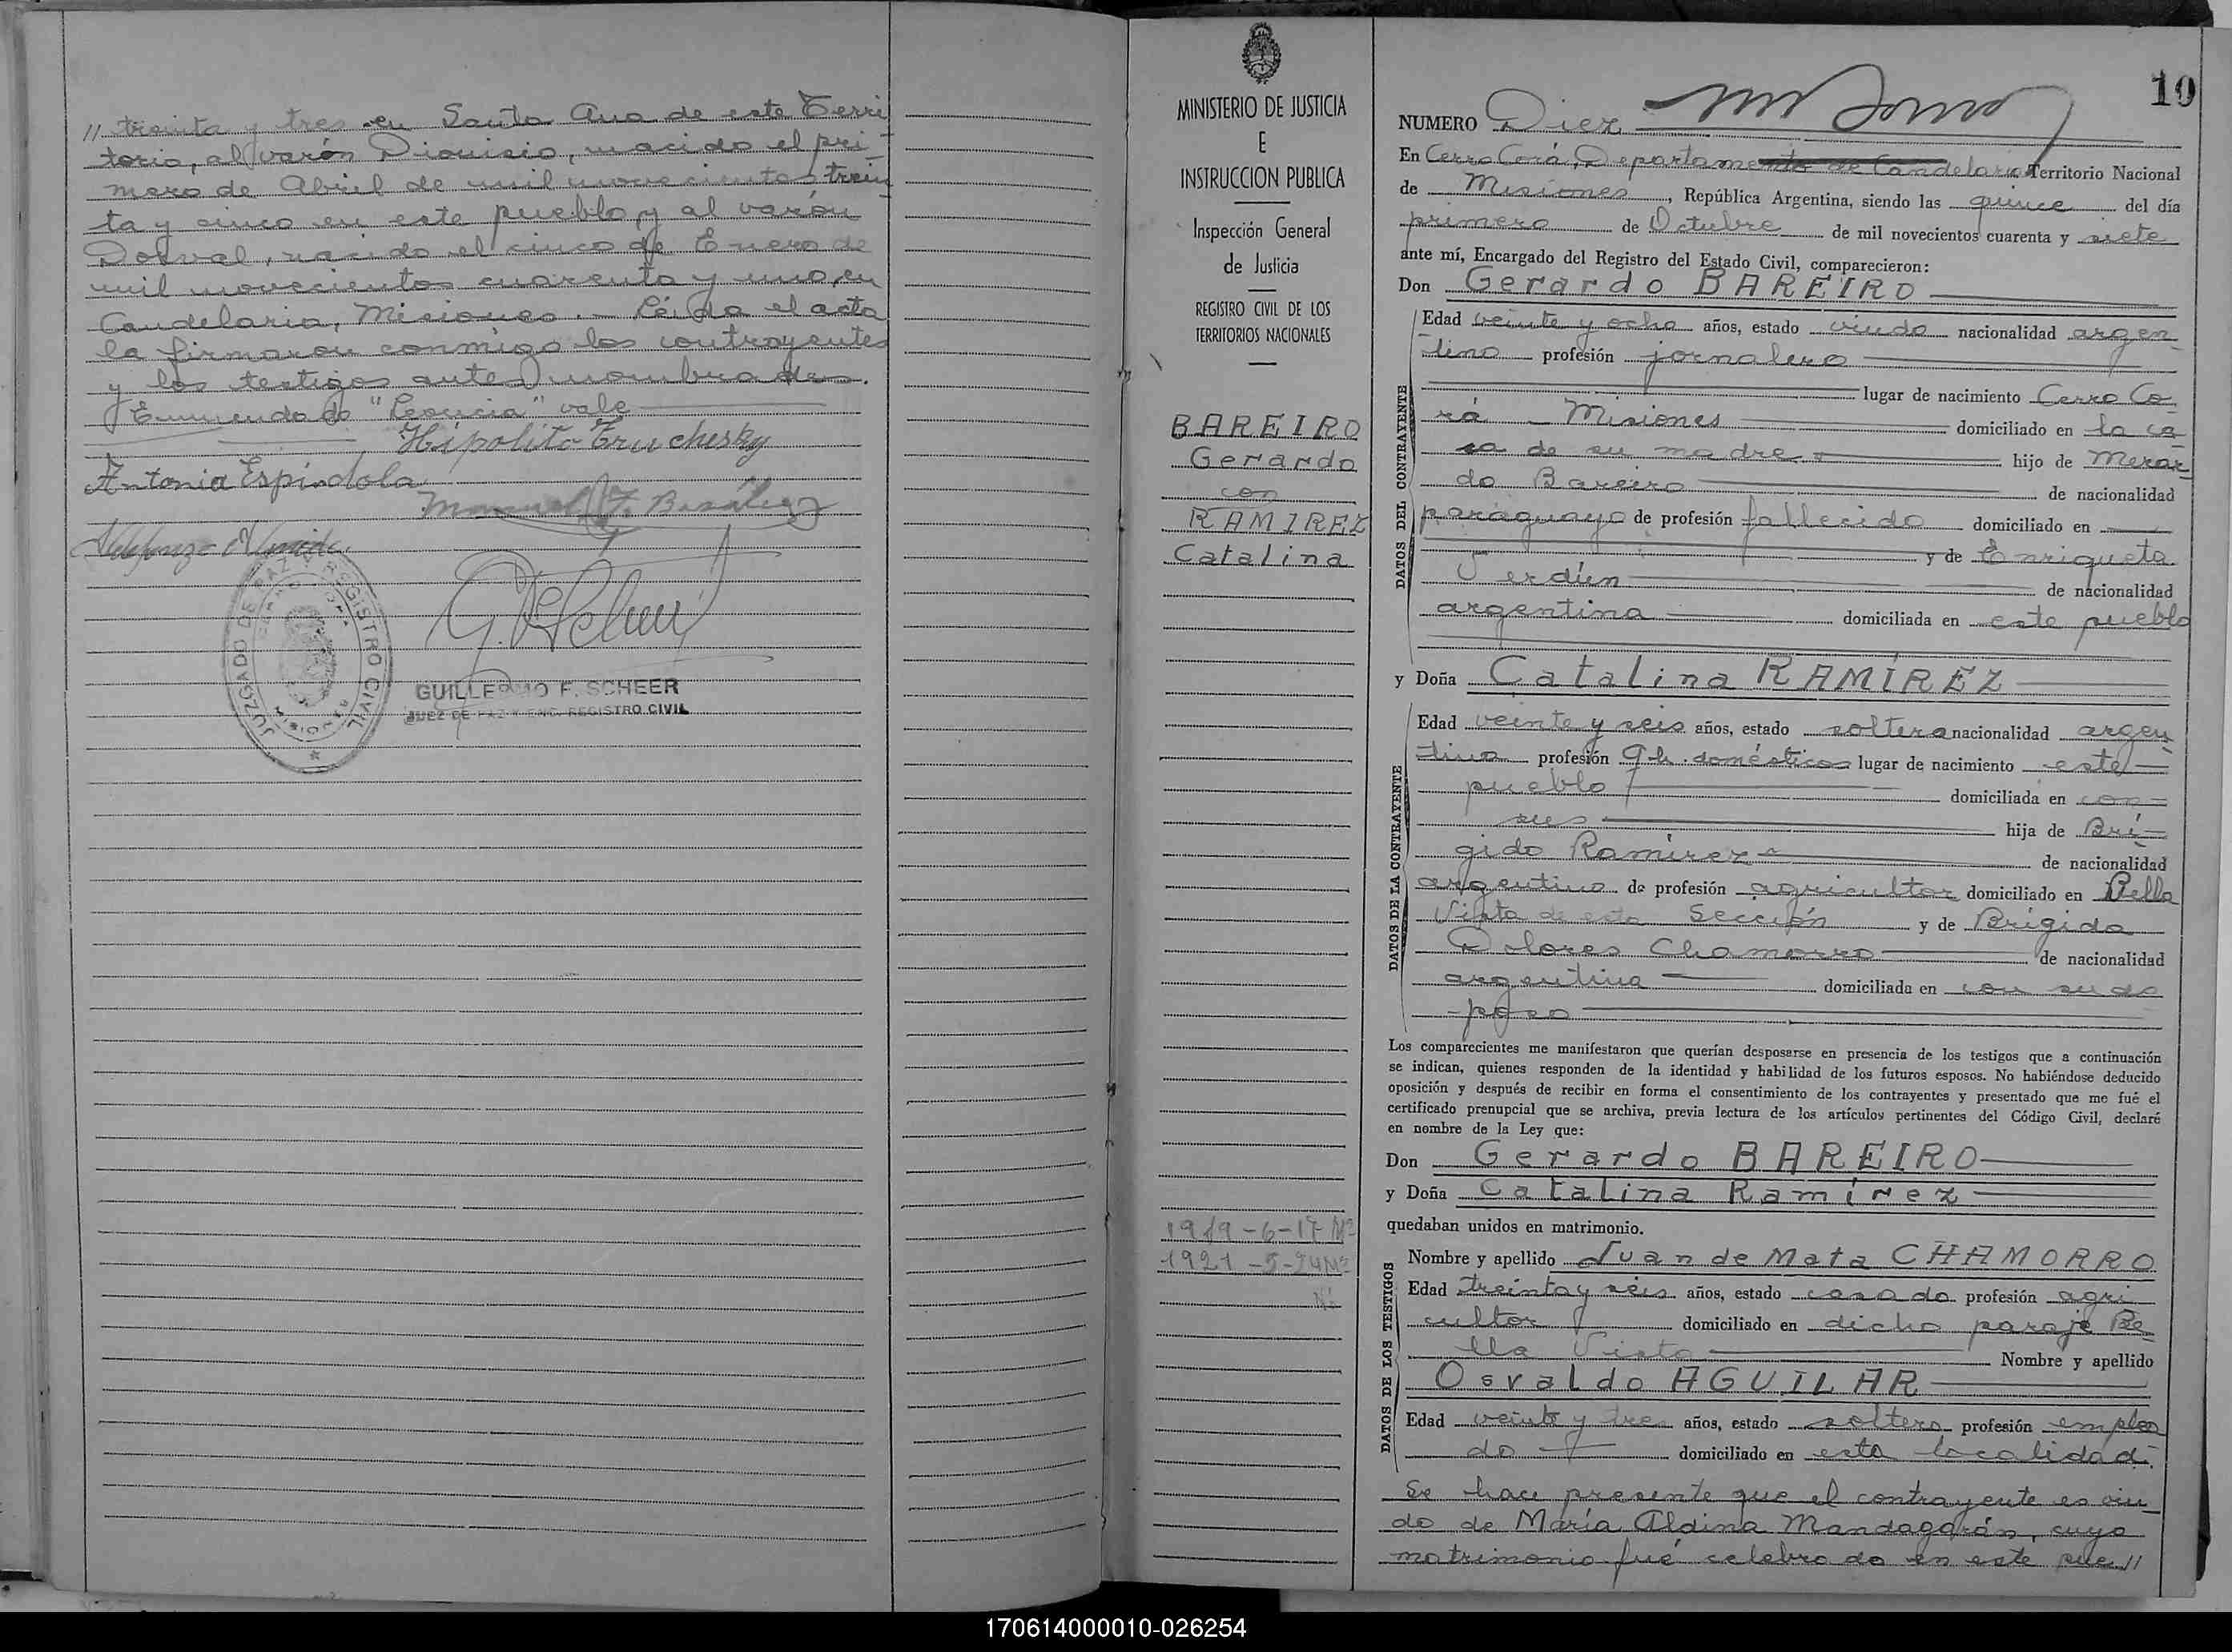 // treinta y tres en Santa Ana de este Terri
torio, al varón Dionisio, nacido el pri
mero de Abril de mil novecientos trein
ta y cinco en este pueblo, y al varón
Dorval, nacido el cinco de Enero de
mil novecientos cuarenta y uno, en
Candelaria, Misiones. — Leída el acta
la firmaron conmigo los contrayentes
y los testigos antes nombrados.
Enmendado "Leoncia" vale
Hipolito Truchesky
Antonia Espíndola
JUZGADO DE PAZ Y REGISTRO CIVIL
GUILLERMO F. SCHEER
JUEZ DE PAZ Y ENC. REGISTRO CIVIL
MINISTERIO DE JUSTICIA
E
INSTRUCCION PUBLICA
Inspección General
de Justicia
REGISTRO CIVIL DE LOS
TERRITORIOS NACIONALES
BAREIRO
Gerardo
con
RAMIREZ
Catalina
1919-6-17
10
NUMERO Diez
En Cerro Corá, Departamento de Candelaria Territorio Nacional
de Misiones, República Argentina, siendo las quince del día
primero de Octubre de mil novecientos cuarenta y siete
ante mí, Encargado del Registro del Estado Civil, comparecieron:
Don Gerardo BAREIRO
DATOS DEL CONTRAYENTE
Edad veinte y ocho años, estado viudo nacionalidad argen
tino profesión jornalero
lugar de nacimiento Cerro Co
rá - Misiones domiciliado en la ca
sa de su madre hijo de Merar
do Bareiro de nacionalidad
paraguayo de profesión fallecido domiciliado en
y de Enriqueta
Verdún de nacionalidad
argentina domiciliada en este pueblo
y Doña Catalina RAMÍREZ
DATOS DE LA CONTRAYENTE
Edad veinte y seis años, estado soltera nacionalidad argen
tina profesión q. h. domésticos lugar de nacimiento este
pueblo domiciliada en con
sus hija de Brí
gido Ramírez de nacionalidad
argentino de profesión agricultor domiciliado en Bella
Vista de esta Sección y de Brígida
Dolores Chamorro de nacionalidad
argentina domiciliada en con su es
poso
Los comparecientes me manifestaron que querían desposarse en presencia de los testigos que a continuación
se indican, quienes responden de la identidad y habilidad de los futuros esposos. No habiéndose deducido
oposición y después de recibir en forma el consentimiento de los contrayentes y presentado que me fué el
certificado prenupcial que se archiva, previa lectura de los artículos pertinentes del Código Civil, declaré
en nombre de la Ley que:
Don Gerardo BAREIRO
y Doña Catalina Ramírez
quedaban unidos en matrimonio.
DATOS DE LOS TESTIGOS
Nombre y apellido Juan de Mata CHAMORRO
Edad treinta y seis años, estado casado profesión agri
cultor domiciliado en dicho paraje Be
lla Vista Nombre y apellido
Osvaldo AGUILAR
Edad veinte y tres años, estado soltero profesión emplea
do domiciliado en esta localidad.
Se hace presente que el contrayente es viu
do de María Aldina Mandagarán, cuyo
matrimonio fué celebrado en este pue//
170614000010-026254